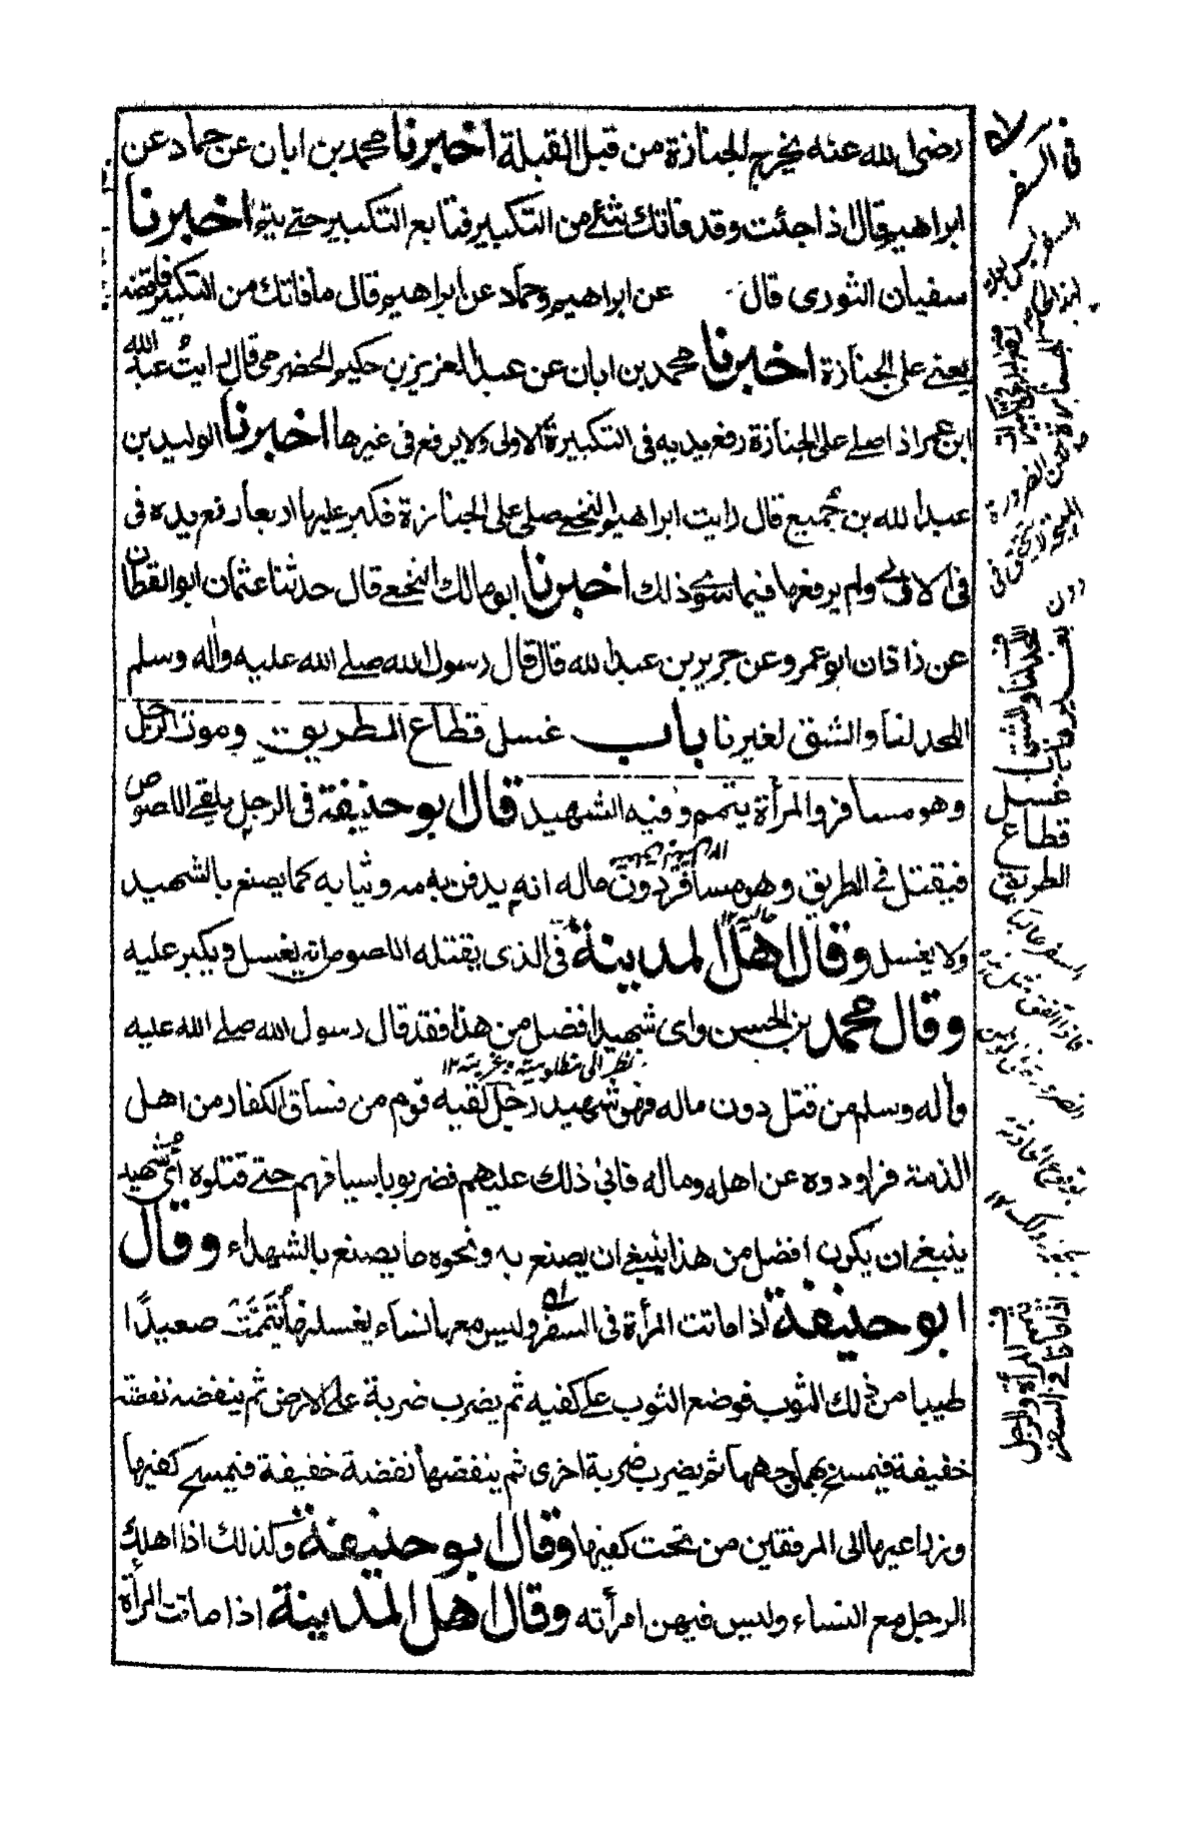 رضی الله عنه یخرج الجنازة من قبل القبلة اخبرنا محمد بن ابان عن حماد عن
ابراهیم قال اذا جئت وقد فاتك شئ من التكبیر فتابع التكبیر حتی یتم اخبرنا
سفیان الثوری قال عن ابراهیم وحماد عن ابراهیم قال ما فاتك من التكبیر فاقضه
یعنی علی الجنازة اخبرنا محمد بن ابان عن عبد العزیز بن حكیم الحضرمی قال رایت عبد الله
ابن عمر اذا صلے علی الجنازة رفع یدیه فی التكبیرة الاولی ولا یرفع فی غیرها اخبرنا الولید بن
عبد الله بن جمیع قال رایت ابراهیم النخعے صلی علی الجنازة فكبر علیها اربعا رفع یده فی
فی الاولے ولم یرفعها فیما سوے ذلك اخبرنا ابو مالك النخعے قال حدثنا عثمان ابو القطان
عن ذاذان ابو عمر وعن جریر بن عبد الله قال قال رسول الله صلے الله علیه واٰله وسلم
اللحد لنا والشق لغیرنا باب غسل قطاع الطریق وموت الرجل
وهو مسافر والمرأة یتمم وفیه الشهید قال ابو حنیفة فی الرجل یلقے اللصوص
فیقتل فے الطریق وهو مسافر دون ماله انه یدفن بدمه وثیابه كما یصنع بالشهید
ولا یغسل وقال اهل المدینة فی الذی یقتله اللصوص انه یغسل ویكبر علیه
وقال محمد بن الحسن وای شهید افضل من هذا فقد قال رسول الله صلے الله علیه
نظر الی مظلومیته وغربته ١٢
واٰله وسلم من قتل دون ماله فهو شهید رجل لقیه قوم من فساق الكفار من اهل
الذمة فراودوه عن اهله وماله فابی ذلك علیهم فضربوه باسیافهم حتے قتلوه أی شهید
ینبغے ان یكون افضل من هذا ینبغے ان یصنع به ونحوه ما یصنع بالشهداء وقال
ابو حنیفة اذا ماتت المرأة فی السفر ولیس معها نساء یغسلنها تیممت صعیدًا
طیبا من ذلك الثوب فوضع الثوب علے كفیه ثم یضرب ضربة علے الارض ثم ینفضه نفضة
خفیفة فیمسح بهما وجهها ثم یضرب ضربة اخری ثم ینفضها نفضة خفیفة فیمسح كفیها
وذراعیها الی المرفقین من تحت كفیها وقال ابو حنیفة وكذلك اذا هلك
الرجل مع النساء ولیس فیهن امرأته وقال اهل المدینة اذا ماتت المرأة
فی السفر
غسل
قطاع
الطریق